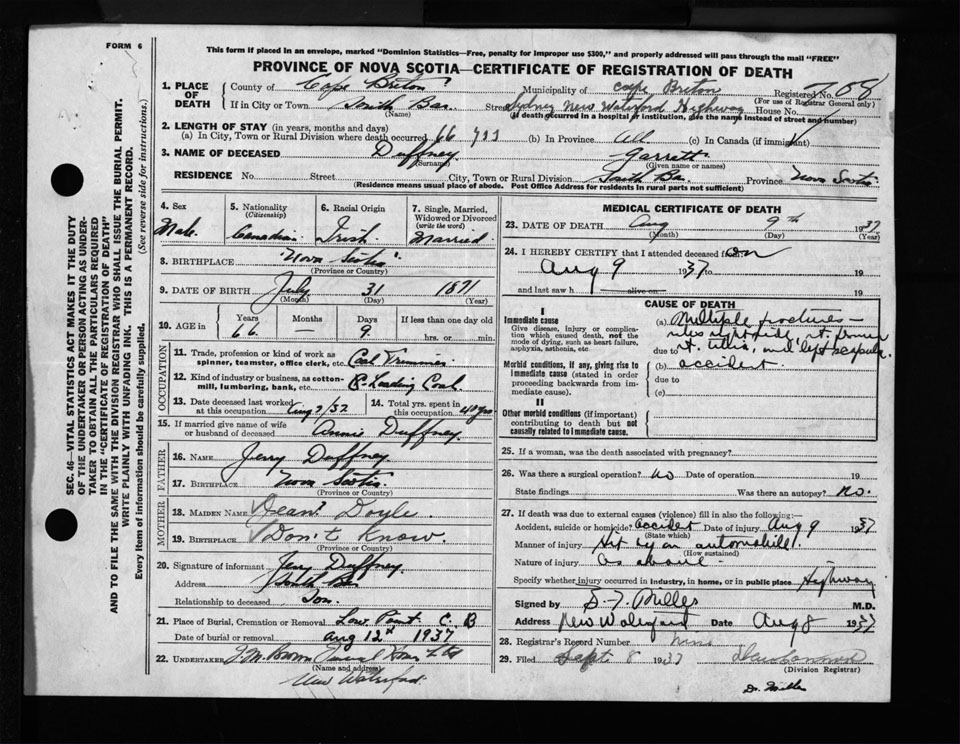 FORM 6
This form if placed in an envelope, marked "Dominion Statistics—Free, penalty for improper use $300," and properly addressed will pass through the mail "FREE"
PROVINCE OF NOVA SCOTIA—CERTIFICATE OF REGISTRATION OF DEATH
1. PLACE OF DEATH County of Cape Breton Municipality of Cape Breton Registered No. 68
(For use of Registrar General only)
If in City or Town South Bar Street Sydney New Waterford Highway House No.
(Name) (If death occurred in a hospital or institution, give the name instead of street and number)
2. LENGTH OF STAY (in years, months and days)
(a) In City, Town or Rural Division where death occurred 66 yrs (b) In Province All (c) In Canada (if immigrant)
3. NAME OF DECEASED Duffney Garrett
(Surname) (Given name or names)
RESIDENCE No. Street City, Town or Rural Division South Bar Province Nova Scotia
(Residence means usual place of abode. Post Office Address for residents in rural parts not sufficient)
SEC. 46—VITAL STATISTICS ACT MAKES IT THE DUTY
OF THE UNDERTAKER OR PERSON ACTING AS UNDER-
TAKER TO OBTAIN ALL THE PARTICULARS REQUIRED
IN THE "CERTIFICATE OF REGISTRATION OF DEATH"
AND TO FILE THE SAME WITH THE DIVISION REGISTRAR WHO SHALL ISSUE THE BURIAL PERMIT.
WRITE PLAINLY WITH UNFADING INK. THIS IS A PERMANENT RECORD.
Every item of information should be carefully supplied. (See reverse side for instructions.)
4. Sex 5. Nationality (Citizenship) 6. Racial Origin 7. Single, Married, Widowed or Divorced (write the word)
Male Canadian Irish Married
8. BIRTHPLACE Nova Scotia
(Province or Country)
9. DATE OF BIRTH July 31 1871
(Month) (Day) (Year)
10. AGE in Years Months Days If less than one day old
66 — 9 hrs. or min.
OCCUPATION
11. Trade, profession or kind of work as spinner, teamster, office clerk, etc. Coal
12. Kind of industry or business, as cotton-mill, lumbering, bank, etc. Loading Coal
13. Date deceased last worked at this occupation Aug /32 14. Total yrs. spent in this occupation 40 yrs
15. If married give name of wife or husband of deceased Annie Duffney
FATHER
16. NAME Jerry Duffney
17. BIRTHPLACE Nova Scotia
(Province or Country)
MOTHER
18. MAIDEN NAME Doyle
19. BIRTHPLACE Don't Know.
(Province or Country)
20. Signature of informant Jerry Duffney.
Address South Bar
Relationship to deceased Son.
21. Place of Burial, Cremation or Removal Low Point C. B
Date of burial or removal Aug 12th 1937
22. UNDERTAKER J M Brown
(Name and address)
New Waterford
MEDICAL CERTIFICATE OF DEATH
23. DATE OF DEATH Aug 9th 1937
(Month) (Day) (Year)
24. I HEREBY CERTIFY that I attended deceased from on
Aug 9 1937 to 19
and last saw h alive on 19
CAUSE OF DEATH
I
Immediate cause
Give disease, injury or complication which caused death, not the mode of dying, such as heart failure, asphyxia, asthenia, etc.
Morbid conditions, if any, giving rise to immediate cause (stated in order proceeding backwards from immediate cause).
II
Other morbid conditions (if important) contributing to death but not causally related to immediate cause.
(a) Multiple fractures —
due to rt. tibia, and left scapula.
(b) accident.
due to
(c)
25. If a woman, was the death associated with pregnancy?
26. Was there a surgical operation? no Date of operation 19
State findings Was there an autopsy? no.
27. If death due to external causes (violence) fill in also the following:—
Accident, suicide or homicide? accident Date of injury Aug 9 1937
(State which)
Manner of injury Hit by an automobile
(How sustained)
Nature of injury as above
Specify whether injury occurred in industry, in home, or in public place Highway
Signed by Miller M.D.
Address New Waterford Date Aug 8 1937
28. Registrar's Record Number
29. Filed Sept 8 1937
(Division Registrar)
Dr. Miller